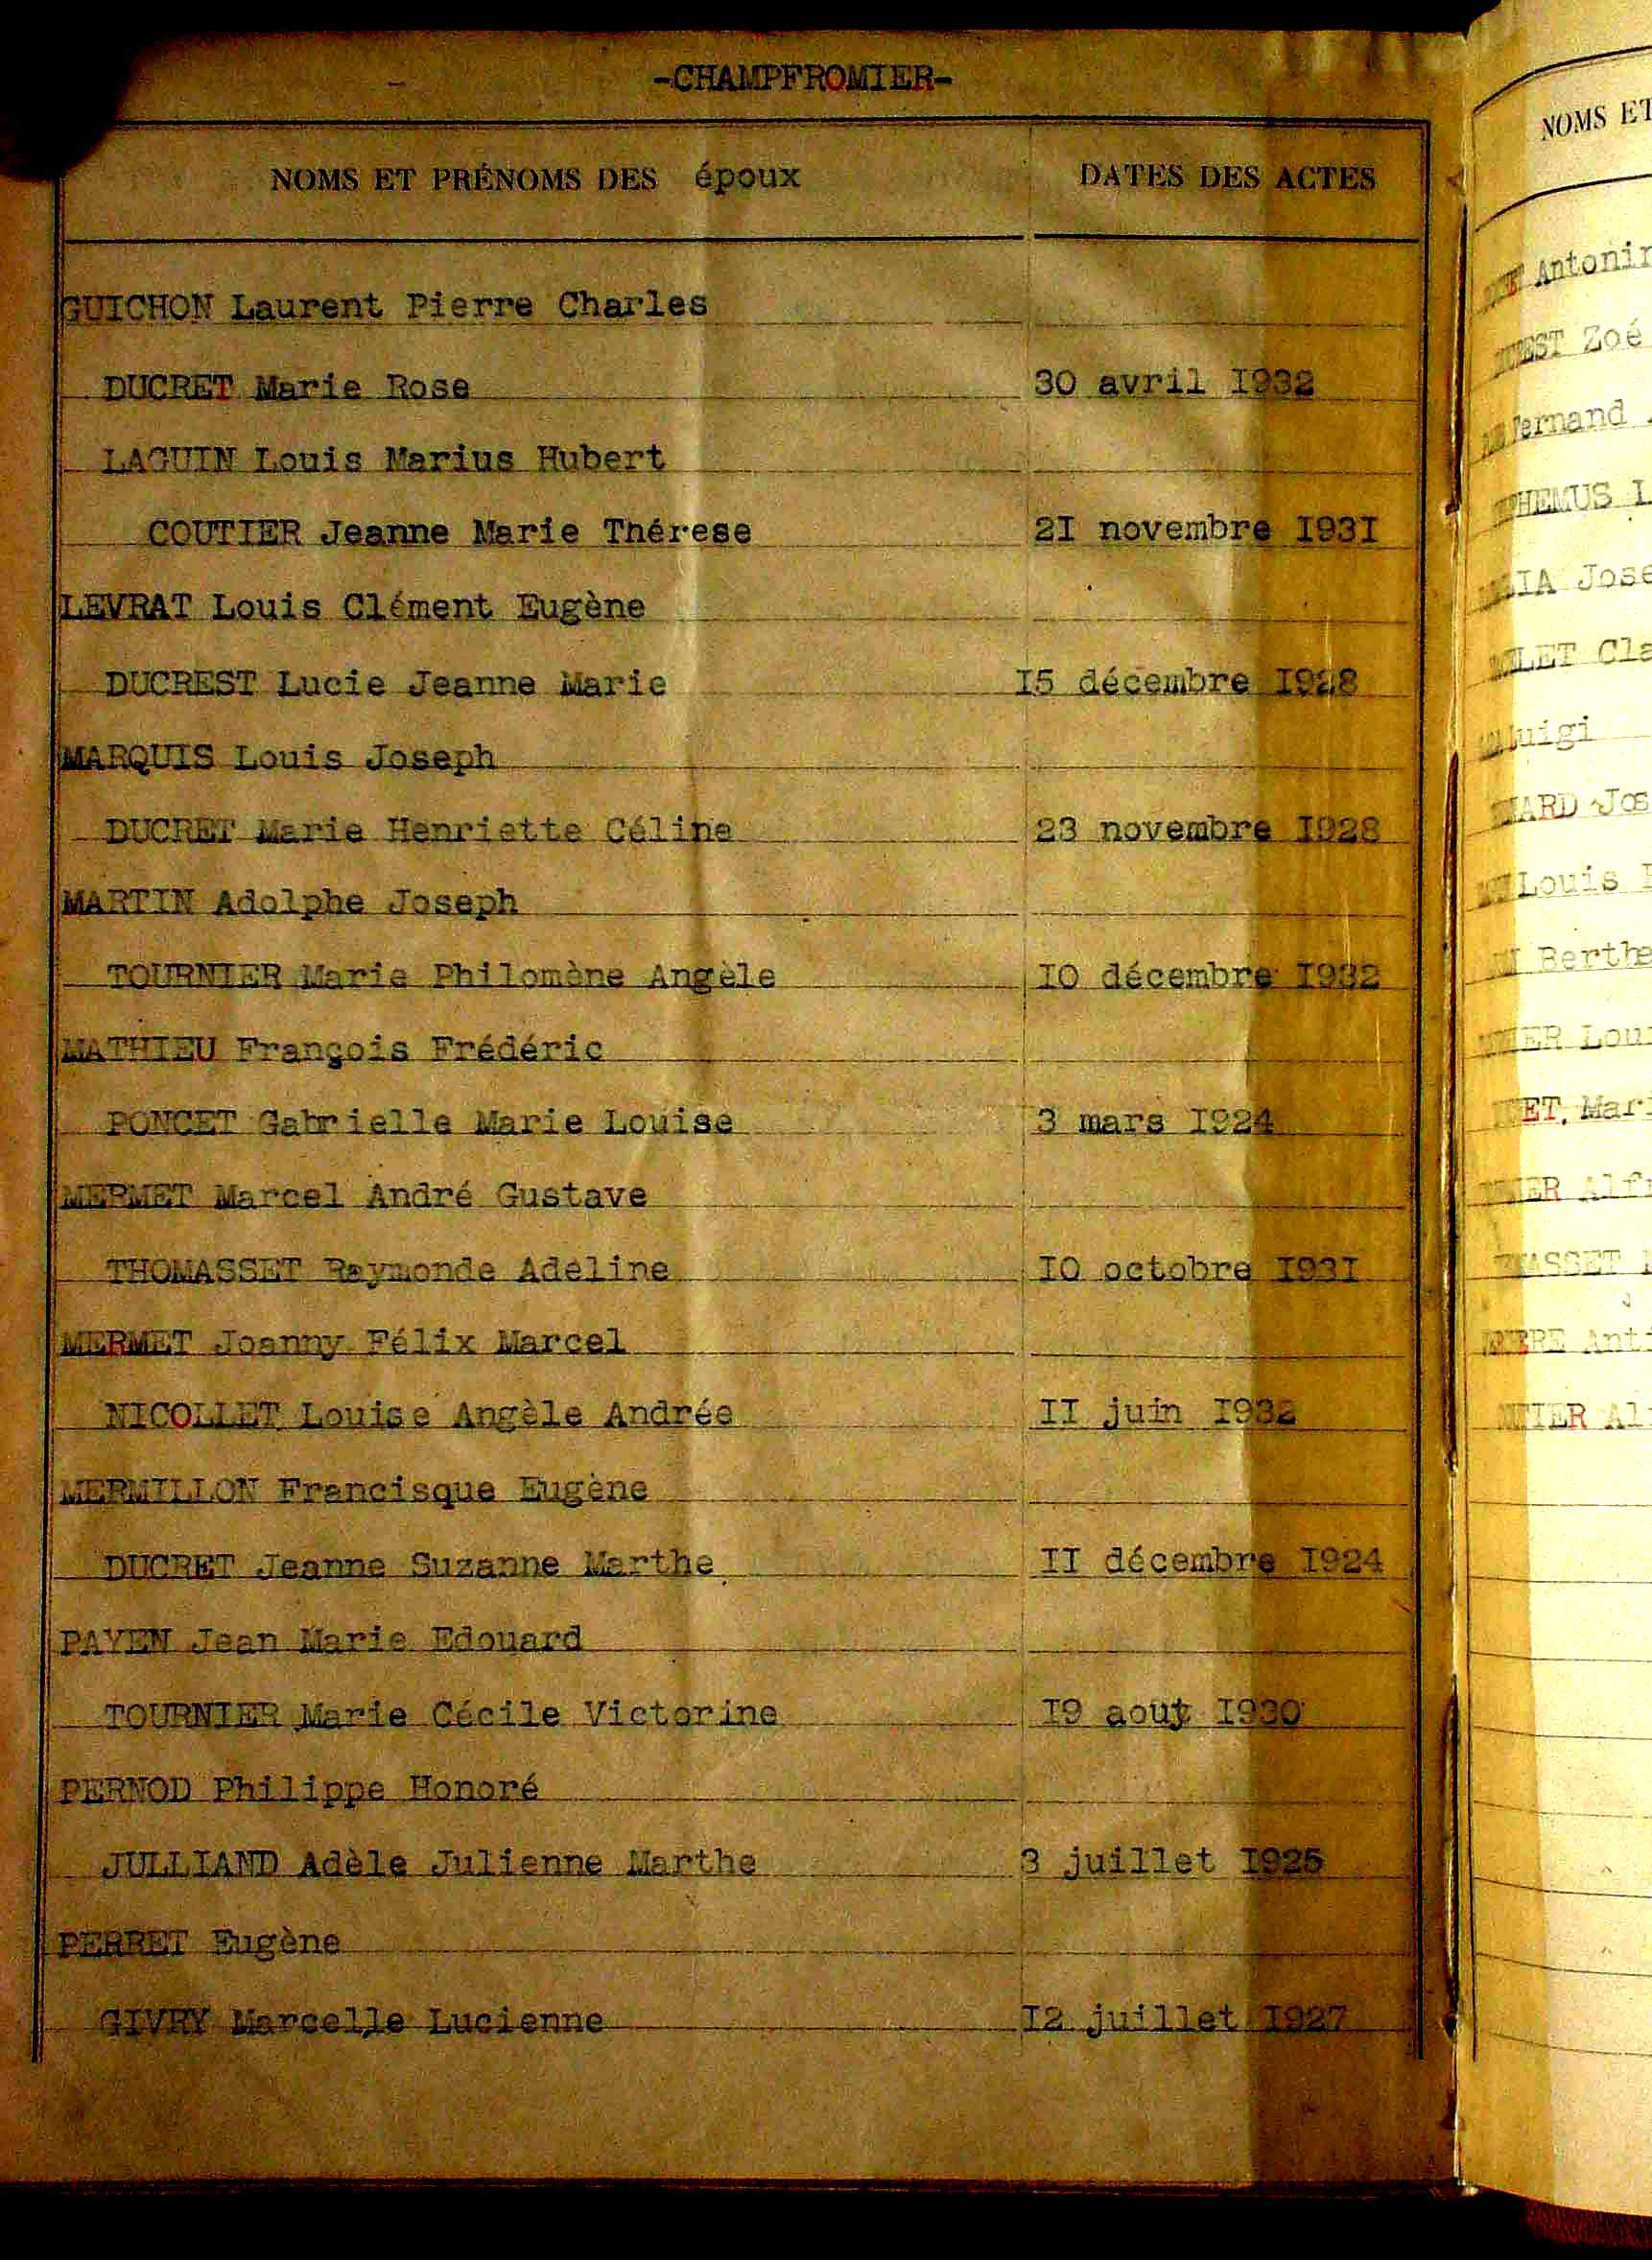 -CHAMPFROMIER-
NOMS ET PRÉNOMS DES époux DATES DES ACTES
GUICHON Laurent Pierre Charles
DUCRET Marie Rose 30 avril I932
LAGUIN Louis Marius Hubert
COUTIER Jeanne Marie Thérese 2I novembre I93I
LEVRAT Louis Clément Eugène
DUCREST Lucie Jeanne Marie I5 décembre I928
MARQUIS Louis Joseph
DUCRET Marie Henriette Céline 23 novembre I928
MARTIN Adolphe Joseph
TOURNIER Marie Philomène Angèle IO décembre I932
MATHIEU François Frédéric
PONCET Gabrielle Marie Louise 3 mars I924
MERMET Marcel André Gustave
THOMASSET Raymonde Adeline IO octobre I93I
MERMET Joanny Félix Marcel
NICOLLET Louise Angèle Andrée II juin I932
MERMILLON Francisque Eugène
DUCRET Jeanne Suzanne Marthe II décembre I924
PAYEN Jean Marie Edouard
TOURNIER Marie Cécile Victorine I9 aout I930
PERNOD Philippe Honoré
JULLIAND Adèle Julienne Marthe 3 juillet I925
PERRET Eugène
GIVRY Marcelle Lucienne I2 juillet I927
NOMS ET
Zoé
Luigi
Louis